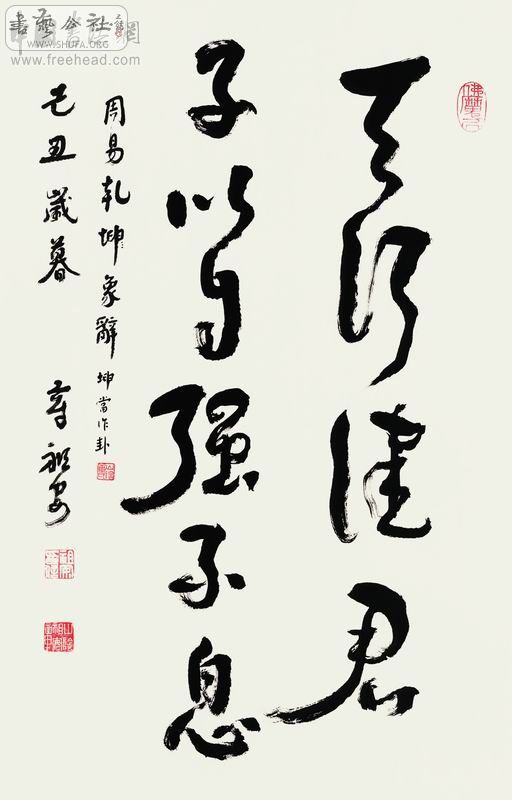 天行健君
子以自强不息
周易乾坤象辭 坤當作卦
己丑歲暮
書藝公社
WWW.SHUFA.ORG
www.freehead.com